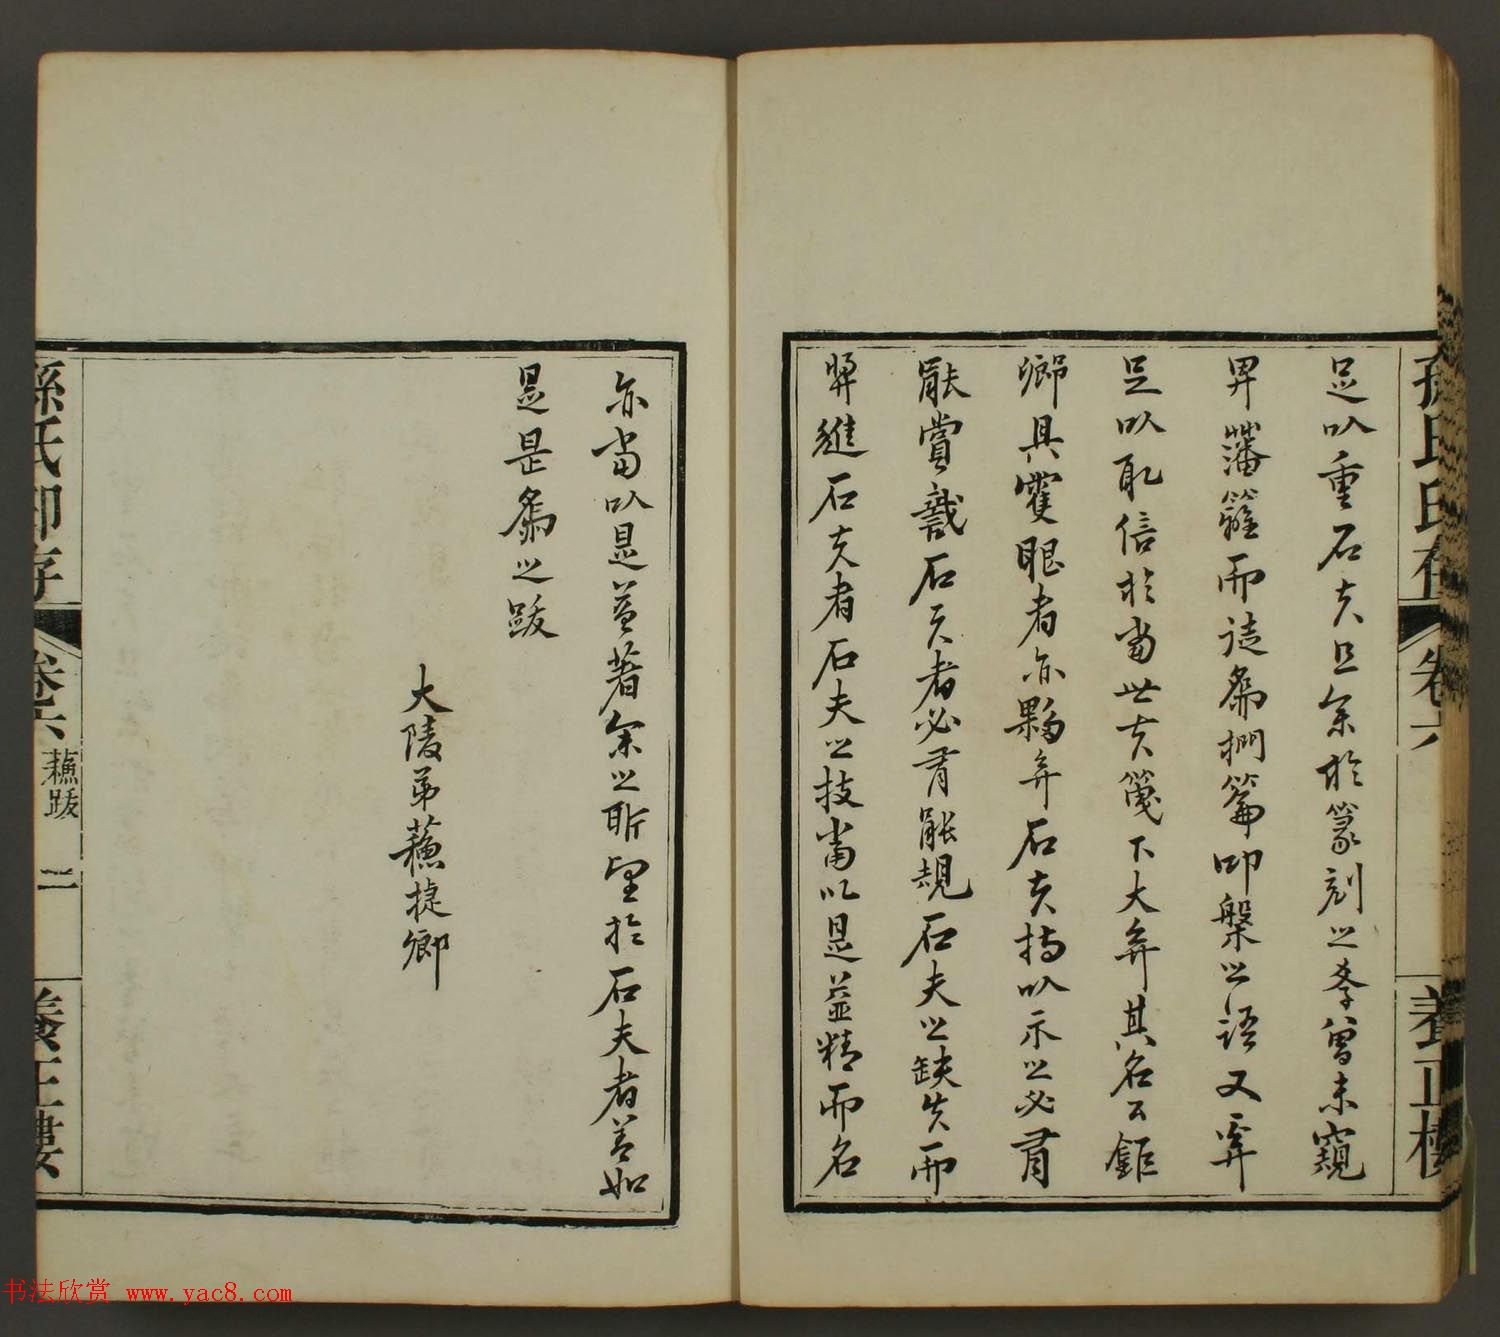 孫氏印存 卷六 養正樓
足以重石夫且余於篆刻之學曾未窺
其藩籬而徒為捫籥叩槃之語又奚
足以取信於當世夫天下大矣其名公鉅
卿具隻眼者亦夥矣石夫持以示之必有
能賞識石夫者必有能規石夫之缺失而
進石夫者石夫之技當以是益精而名
亦當以是益著余之所望於石夫者盖如
是是為之跋
大陵弟蘇捷卿
孫氏印存 卷六 蘇跋 二 養正樓
书法欣赏 www.yac8.com